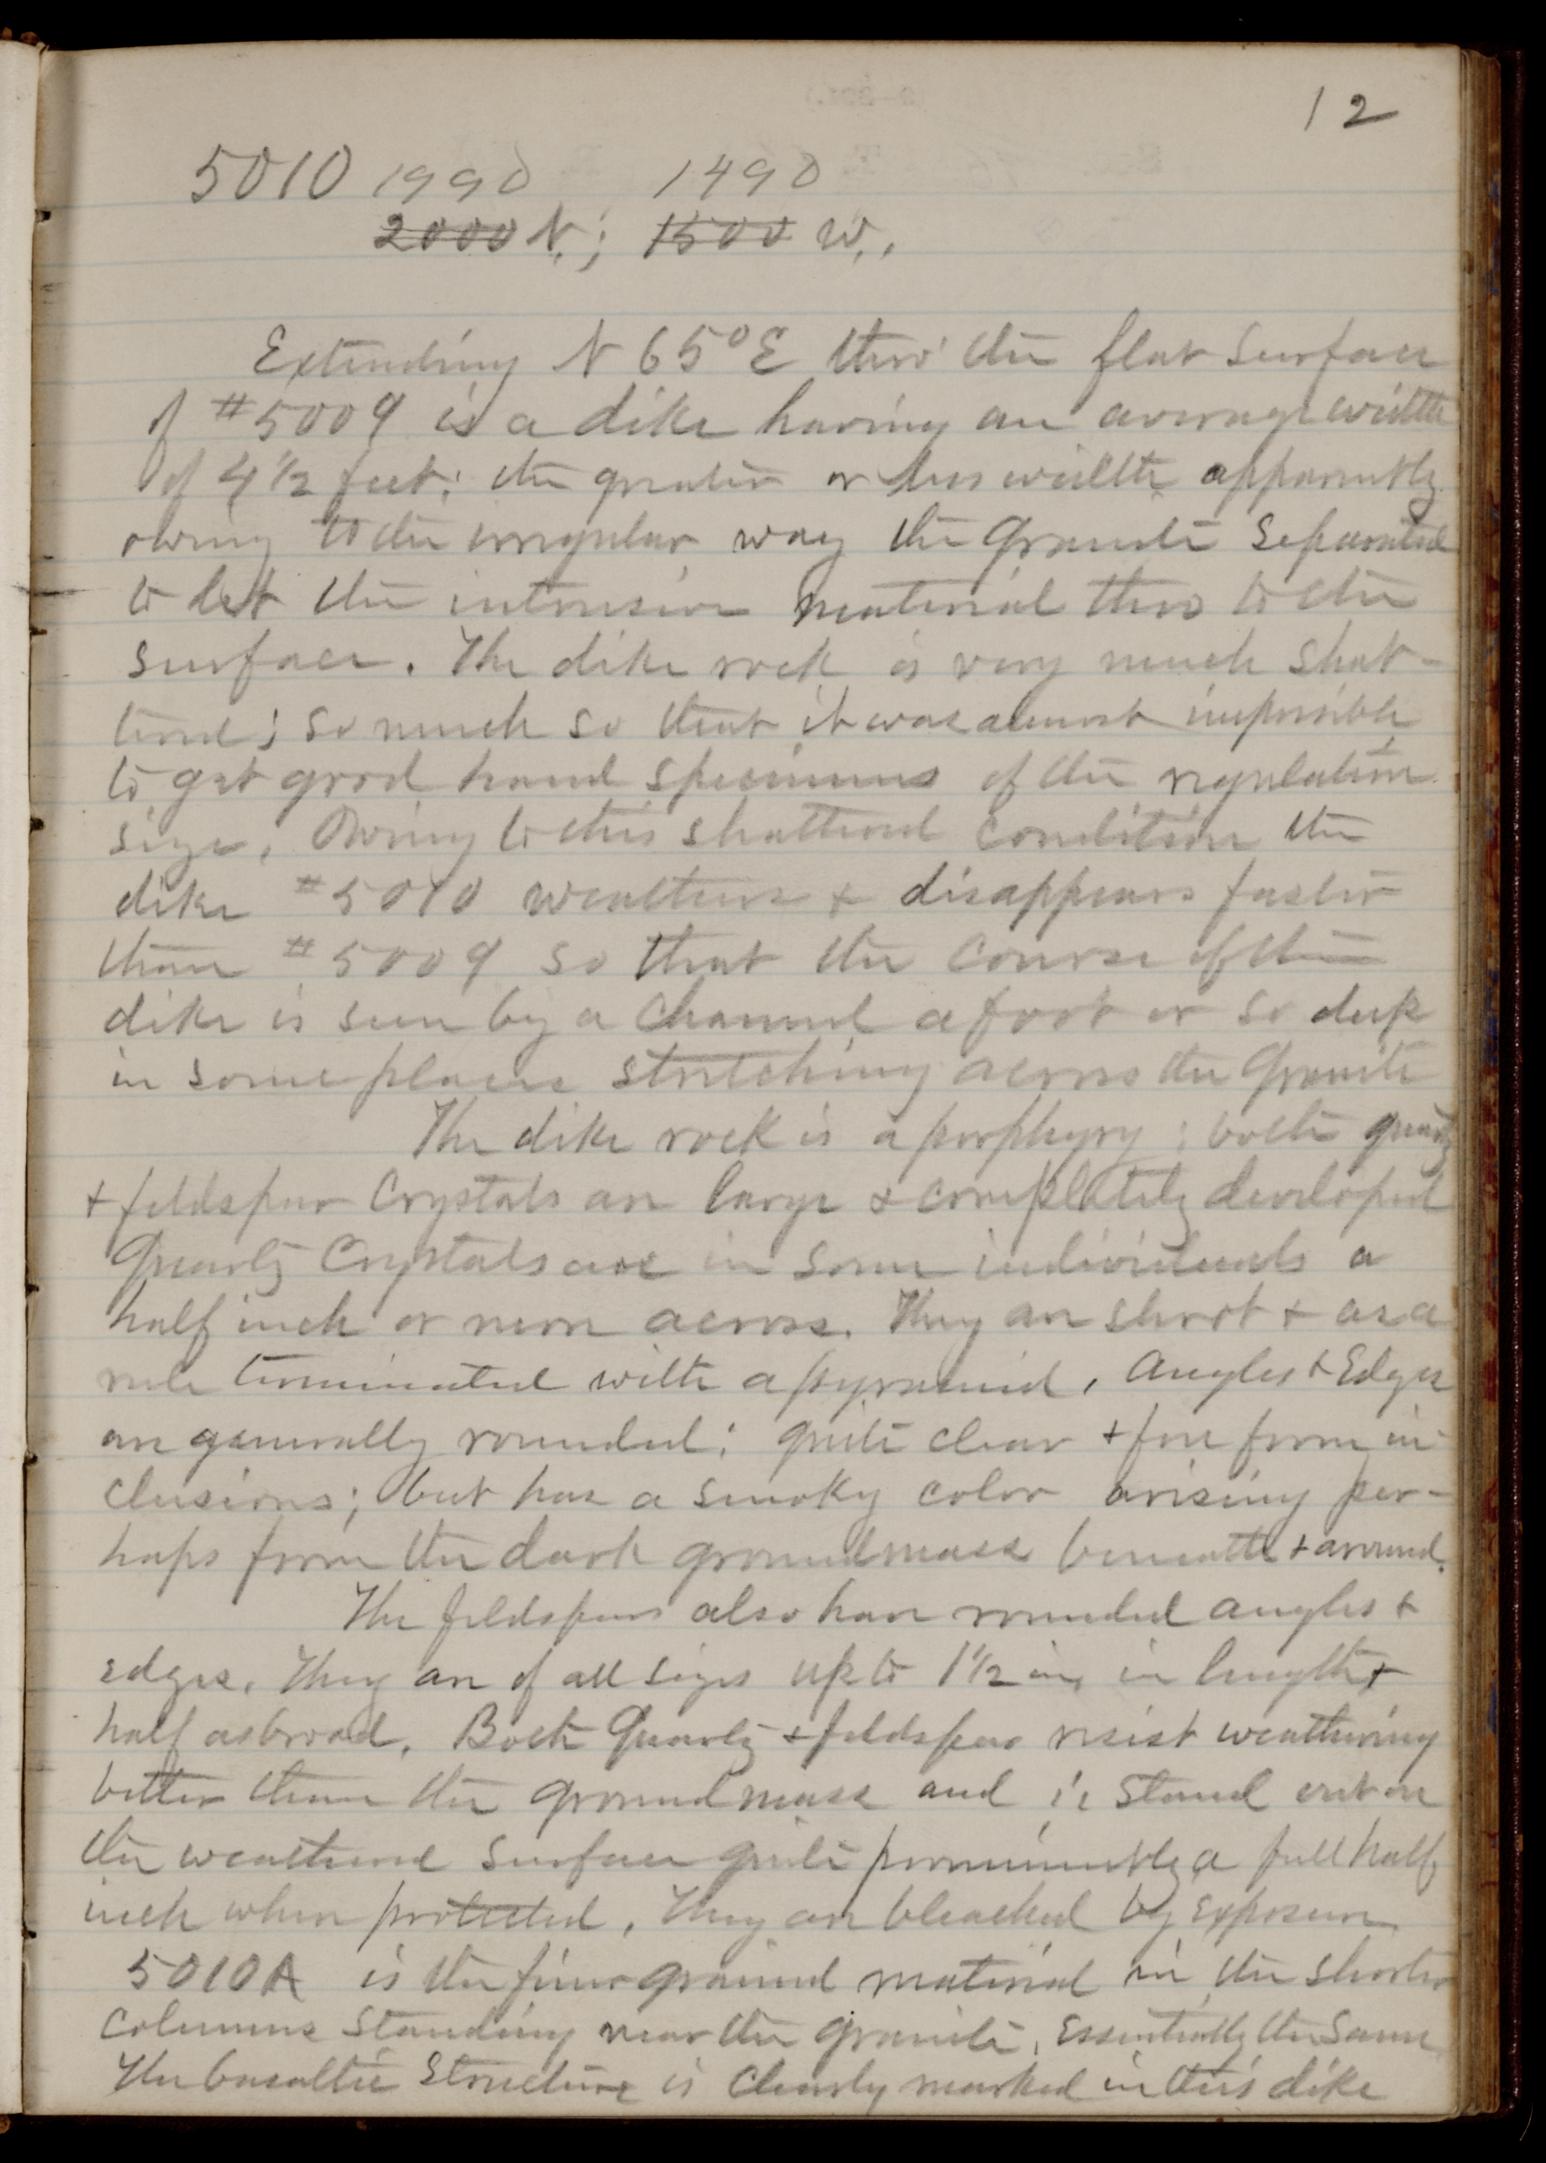 12
5010 1990 1490
2000 N.; 1500 W.,
Extending N 65° E thro' the flat surface
of #5009 is a dike having an average width
of 4 1/2 feet; the greater or less width apparently
owing to the irregular way the granite separated
to let the intrusive material thro to the
surface. The dike rock is very much shat-
tered; so much so that it was almost impossible
to get good hand specimens of the regulation
size. Owing to this shattered condition the
dike #5010 weathers & disappears faster
than #5009 so that the course of the
dike is seen by a channel a foot or so deep
in some places stretching across the granite
The dike rock is a porphyry; both quartz
& feldspar crystals are large & completely developed
Quartz Crystals are in some individuals a
half inch or more across. They are short & as a
rule terminated with a pyramid. Angles & Edges
are generally rounded; quite clear & free from in
clusions; but has a smoky color arising per-
haps from the dark groundmass beneath & around.
The feldspars also have rounded angles &
edges. They are of all sizes up to 1 1/2 in. in length &
half as broad. Both Quartz & feldspar resist weathering
better than the groundmass and stand out on
the weathered surface quite prominently a full half
inch when protected. They are bleached by exposure
5010A is the finer grained material in the shorter
columns standing near the granite. Essentially the same.
The basaltic structure is clearly marked in this dike